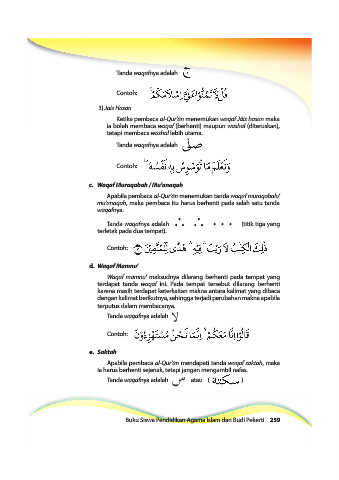 Tanda waqafnya adalah ج
Contoh: قُلْ لَّا تَمُنُّوْا عَلَيَّ اِسْلَامَكُمْ ۚ
3) Jaiz Hasan
Ketika pembaca al-Qur'ān menemukan waqaf Jāiz hasan maka
ia boleh membaca waqaf (berhenti) maupun washal (diteruskan),
tetapi membaca washal lebih utama.
Tanda waqafnya adalah صلى
Contoh: وَنَعْلَمُ مَا تُوَسْوِسُ بِهٖ نَفْسُهٗ ۖ
c. Waqaf Muraqabah / Mu'anaqah
Apabila pembaca al-Qur'ān menemukan tanda waqaf muraqabah/
mu'anaqah, maka pembaca itu harus berhenti pada salah satu tanda
waqafnya.
Tanda waqafnya adalah ∴ ∴ • • • (titik tiga yang
terletak pada dua tempat).
Contoh: ذٰلِكَ الْكِتٰبُ لَا رَيْبَ ۛ فِيْهِ ۛ هُدًى لِّلْمُتَّقِيْنَ
d. Waqaf Mamnu'
Waqaf mamnu' maksudnya dilarang berhenti pada tempat yang
terdapat tanda waqaf ini. Pada tempat tersebut dilarang berhenti
karena masih terdapat keterkaitan makna antara kalimat yang dibaca
dengan kalimat berikutnya, sehingga terjadi perubahan makna apabila
terputus dalam membacanya.
Tanda waqafnya adalah لا
Contoh: قَالُوْٓا اِنَّا مَعَكُمْ ۙ اِنَّمَا نَحْنُ مُسْتَهْزِءُوْنَ
e. Saktah
Apabila pembaca al-Qur'ān mendapati tanda waqaf saktah, maka
ia harus berhenti sejenak, tetapi jangan mengambil nafas.
Tanda waqafnya adalah س atau (سكتة)
Buku Siswa Pendidikan Agama Islam dan Budi Pekerti 259